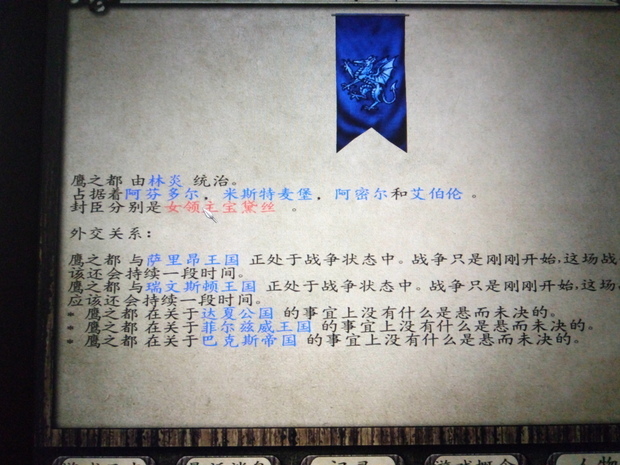 鹰之都 由林炎 统治。
占据着阿芬多尔，米斯特麦堡，阿密尔和艾伯伦 。
封臣分别是女领主宝黛丝 。
外交关系：
鹰之都 与萨里昂王国 正处于战争状态中。战争只是刚刚开始,这场战
该还会持续一段时间。
鹰之都 与瑞文斯顿王国 正处于战争状态中。战争只是刚刚开始,这场
应该还会持续一段时间。
• 鹰之都 在关于达夏公国 的事宜上没有什么是悬而未决的。
• 鹰之都 在关于菲尔兹威王国 的事宜上没有什么是悬而未决的。
• 鹰之都 在关于巴克斯帝国 的事宜上没有什么是悬而未决的。